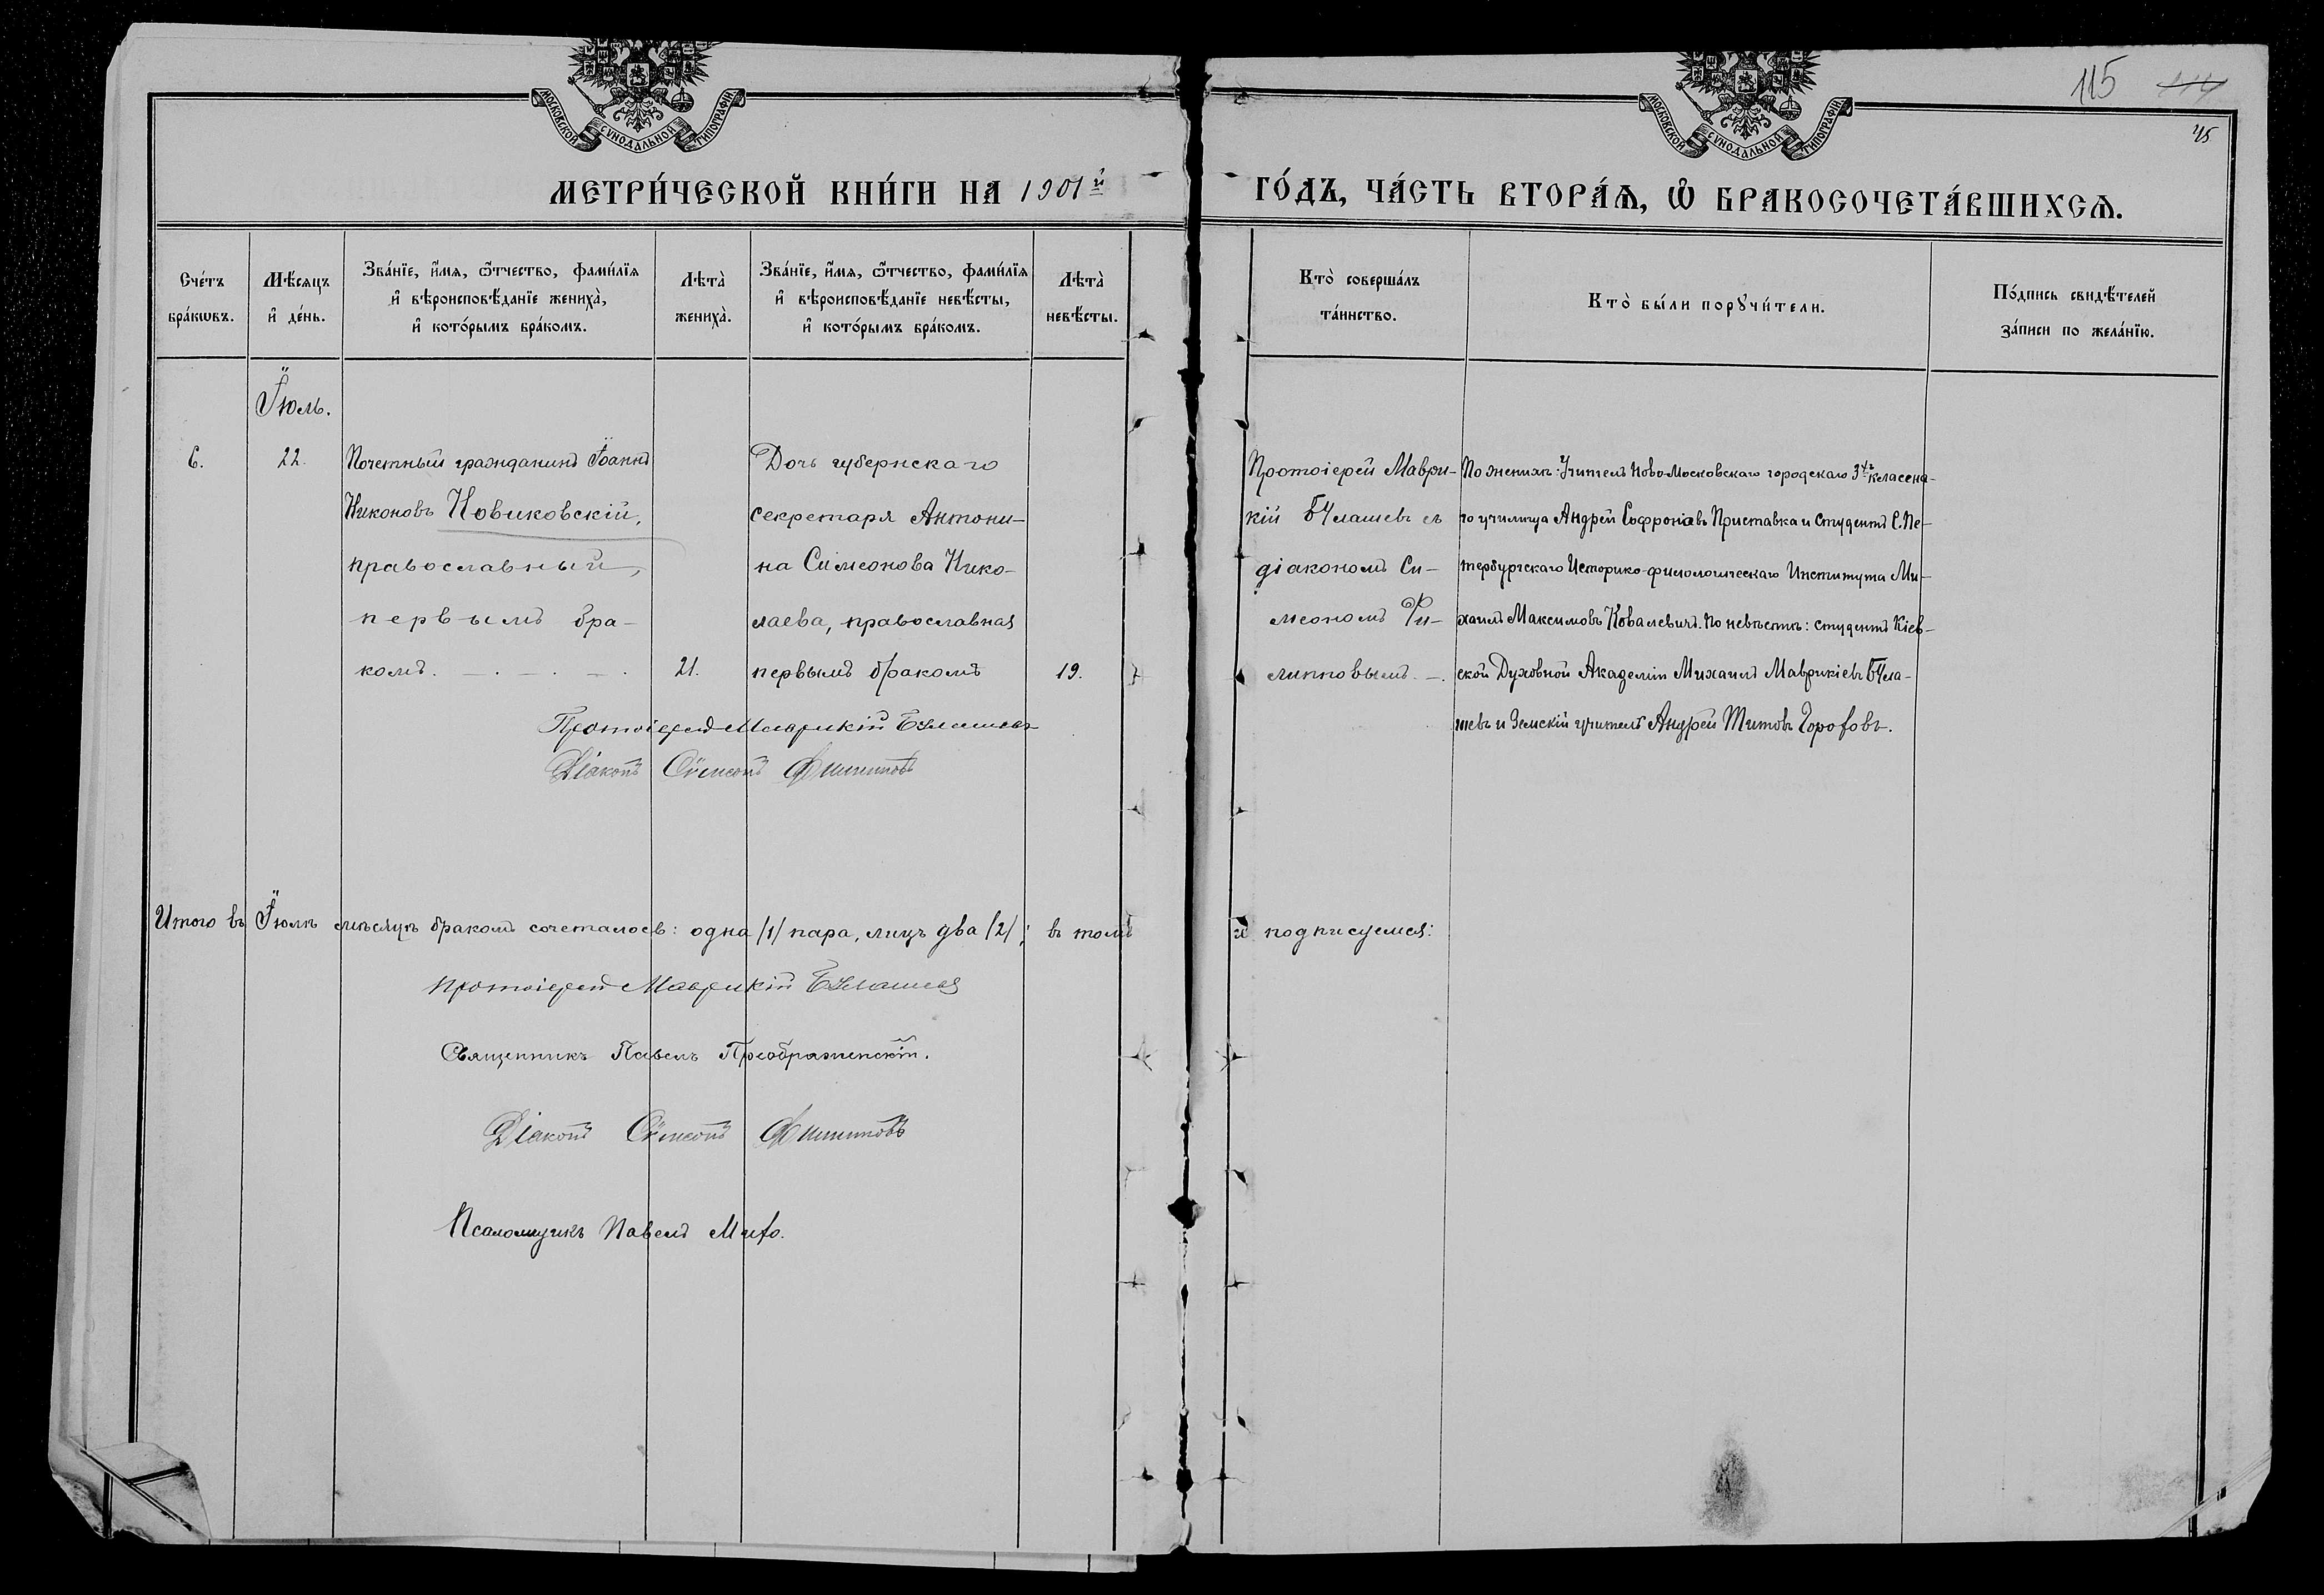 МОСКОВСКОЙ СУНОДАЛЬНОЙ ТИПОГРАФІИ
МОСКОВСКОЙ СУНОДАЛЬНОЙ ТИПОГРАФІИ
115
45
МЕТРИ́ЧЕСКОЙ КНИ́ГИ НА 1901й
ГО́ДЪ, ЧА́СТЬ ВТОРА́Ѧ, Ѽ БРАКОСОЧЕТА́ВШИХСѦ.
Сче́тъ
бра́кѡвъ.
Мѣ́сяцъ
и҆ де́нь.
Зва́нїе, и҆́мѧ, ѻ҆́тчество, фами́лїѧ
и҆ вѣроисповѣ́данїе жениха̀,
и҆ кото́рымъ бра́комъ.
Лѣта̀
жениха̀.
Зва́нїе, и҆́мѧ, ѻ҆́тчество, фами́лїѧ
и҆ вѣроисповѣ́данїе невѣ́сты,
и҆ кото́рымъ бра́комъ.
Лѣта̀
невѣ́сты.
Кто̀ соверша́лъ
та́инство.
Кто̀ бы́ли порꙋчи́тели.
По́дпись свидѣ́телей
за́писи по жела́нїю.
Іюль.
6.
22.
Почетный гражданинъ Іоаннъ
Никоновъ Новиковскій,
православный,
первымъ бра-
комъ.
21.
Дочь губернскаго
секретаря Антони-
на Симеонова Нико-
лаева, православная
первымъ бракомъ
19.
Протоіерей Маври-
кій Бꙋлашевъ съ
діакономъ Си-
меономъ Фи-
липповымъ.
По женихѣ: Учитель Ново-Московскаго городскаго 3хъ класена-
го училища Андрей Софроніевъ Приставка и студентъ С. Пе-
тербургскаго Историко-филологическаго Института Ми-
хаилъ Максимовъ Ковалевичъ. По невѣстѣ: студентъ Кіев-
ской Духовной Академіи Михаилъ Маврикіевъ Бꙋла-
шевъ и Земскій учитель Андрей Титовъ
Протоіерей Маврикій Бꙋлашевъ
Діаконъ Сѵмеонъ Филипповъ
Итого въ Іюлѣ мѣсяцѣ бракомъ сочеталось: одна /1/ пара, лицъ два /2/; въ томъ
и подписуемся:
Протоіерей Маврикій Бꙋлашевъ
Священникъ Павелъ Преображенскій.
Діаконъ Сѵмеонъ Филипповъ
Псаломщикъ Павелъ